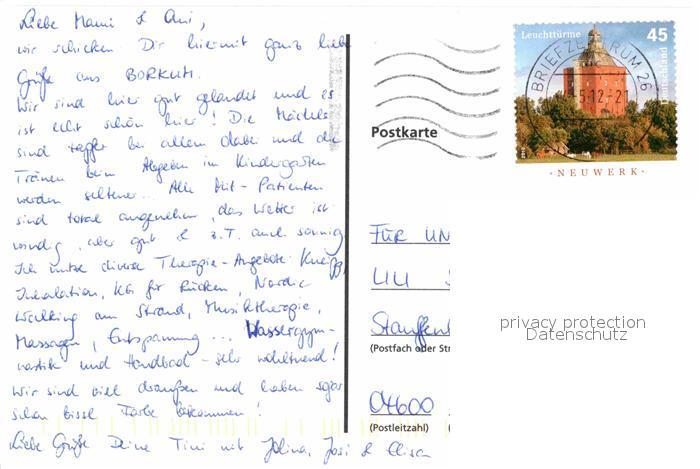 Liebe Mami & Omi,
wir schicken Dir hiermit ganz liebe
Grüße aus BORKUM.
Wir sind hier gut gelandet und es
ist echt schön hier! Die Mädels
sind tapfer bei allem dabei und die
Tränen beim Abgeben im Kindergarten
werden seltener... Alle Mit-Patienten
sind total angenehm, das Wetter ist
windig, aber gut & z.T. auch sonnig
Ich nutze diverse Therapie-Angebote: Kneipp,
Inhalation, KG für Rücken, Nordic
Walking am Strand, Musiktherapie,
Massagen, Entspannung... Wassergym-
nastik und Handbad - sehr wohltuend!
Wir sind viel draußen und haben sogar
schon bissl Farbe bekommen!
Liebe Grüße Deine Tini mit Jolina, Josi &
Leuchttürme 45
Deutschland
BRIEFZENTRUM 26
-5.12-21
· NEUWERK ·
Postkarte
FÜR UN
Stauffen
(Postfach oder Str
04600
(Postleitzahl)
privacy protection
Datenschutz